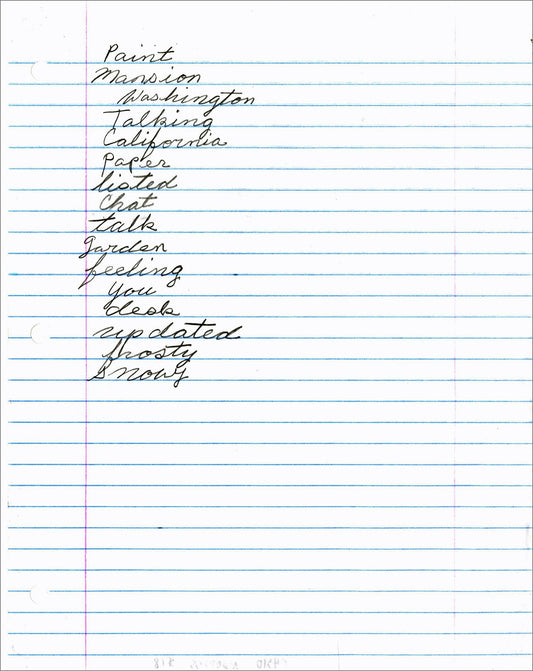 Paint
Mansion
Washington
Talking
California
Paper
listed
Chat
talk
garden
feeling
you
desk
updated
frosty
Snowy